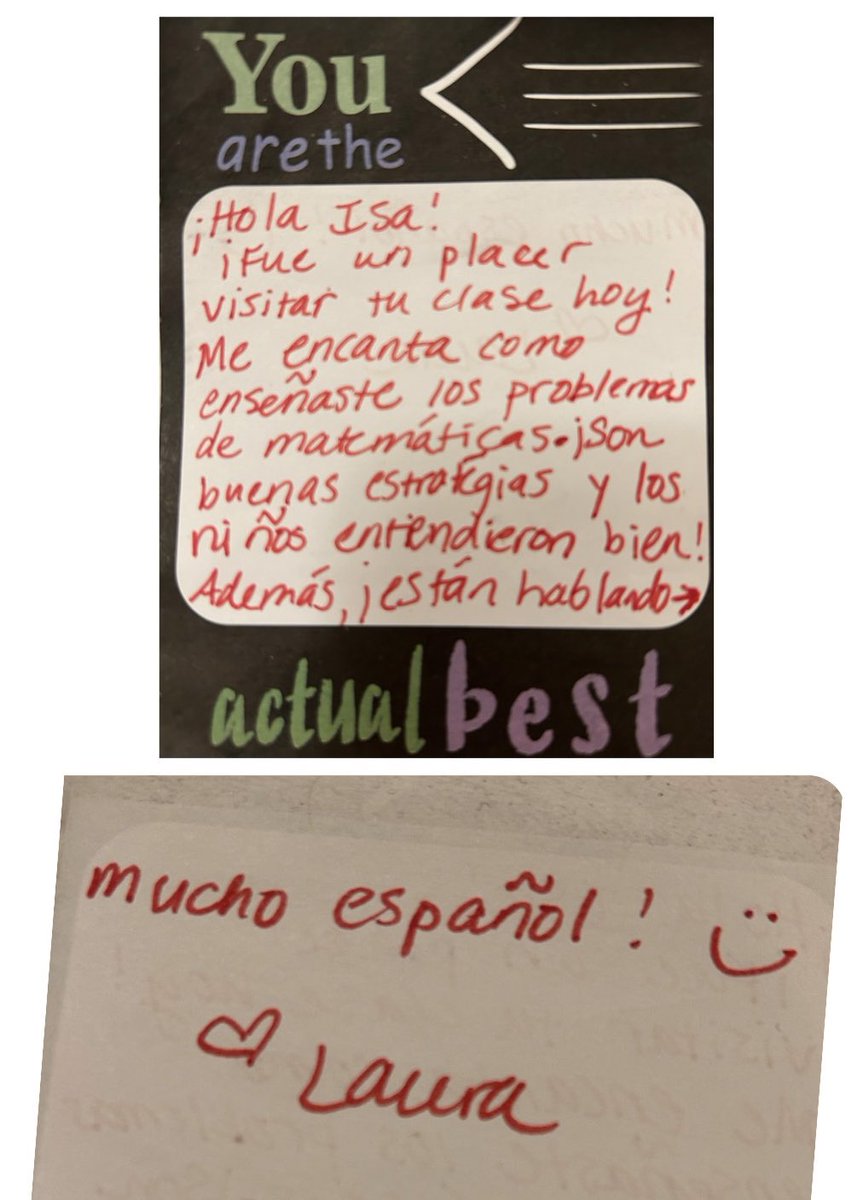 You
are the
¡Hola Isa!
¡Fue un placer
visitar tu clase hoy!
Me encanta como
enseñaste los problemas
de matemáticas. ¡Son
buenas estrategias y los
niños entendieron bien!
Además, ¡están hablando→
actual best
mucho español!
Laura